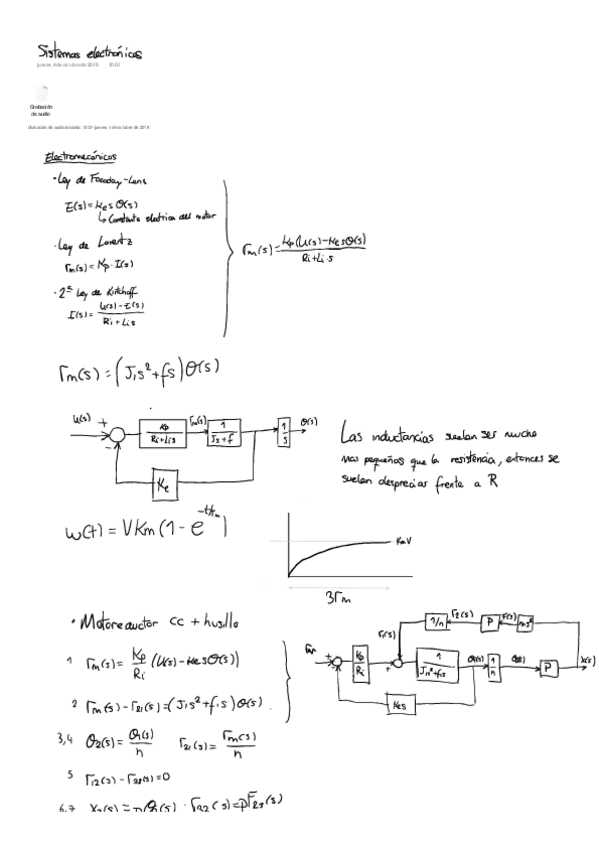 Sistemas electrónicos
jueves, 4 de octubre de 2018 10:02
Grabación
de audio
Electromecánicos
· Ley de Faraday-Lenz
E(s) = Ke s Θ(s)
↳ Constante eléctrica del motor
· Ley de Lorentz
Γm(s) = Kp · I(s)
· 2ª Ley de Kitchoff
I(s) = (U(s) - E(s)) / (Ri + Lis)
Γm(s) = (Kp (U(s) - Ke s Θ(s))) / (Ri + Li·s)
Γm(s) = (J1s² + fs) Θ(s)
U(s) + - Kp / (Ri + Lis) Γm(s) 1 / (Js + f) 1/s Θ(s)
Ke
Las inductancias suelen ser mucho
mas pequeños que la resistencia, entonces se
suelen despreciar frente a R
w(t) = VKm (1 - e
KmV
3Γm
· Motoreductor cc + husillo
1 Γm(s) = Kp/Ri (U(s) - Ke s Θ(s))
2 Γm(s) - Γ21(s) = (J1s² + f1s) Θ(s)
3,4 Θ2(s) = Θ1(s)/n Γ21(s) = Γm(s)/n
5 Γ12(s) - Γ23(s) = 0
1/n Γ2(s) P F(s) ms²
Γ(s)
+ - Kp/Ri + 1/n P X(s)
Kes
6,7